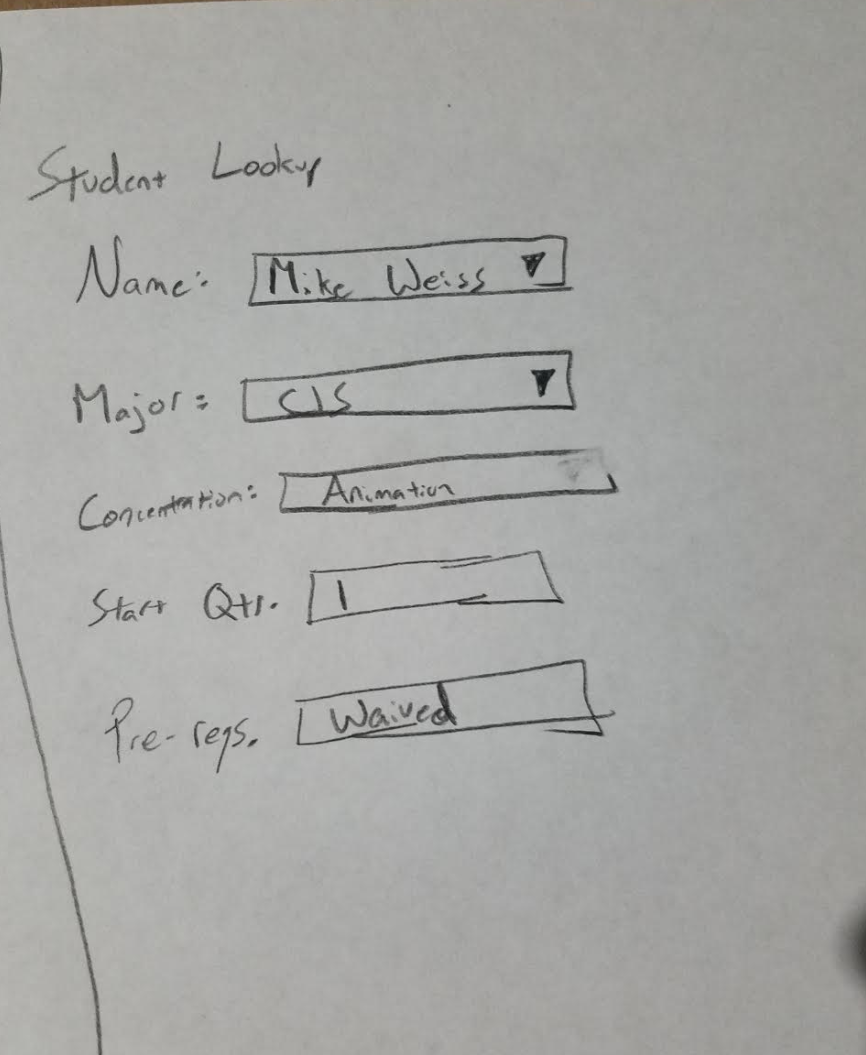 Student Lookup
Name: Mike Weiss
Major: CIS
Concentration: Animation
Start Qtr. 1
Pre-reqs. Waived